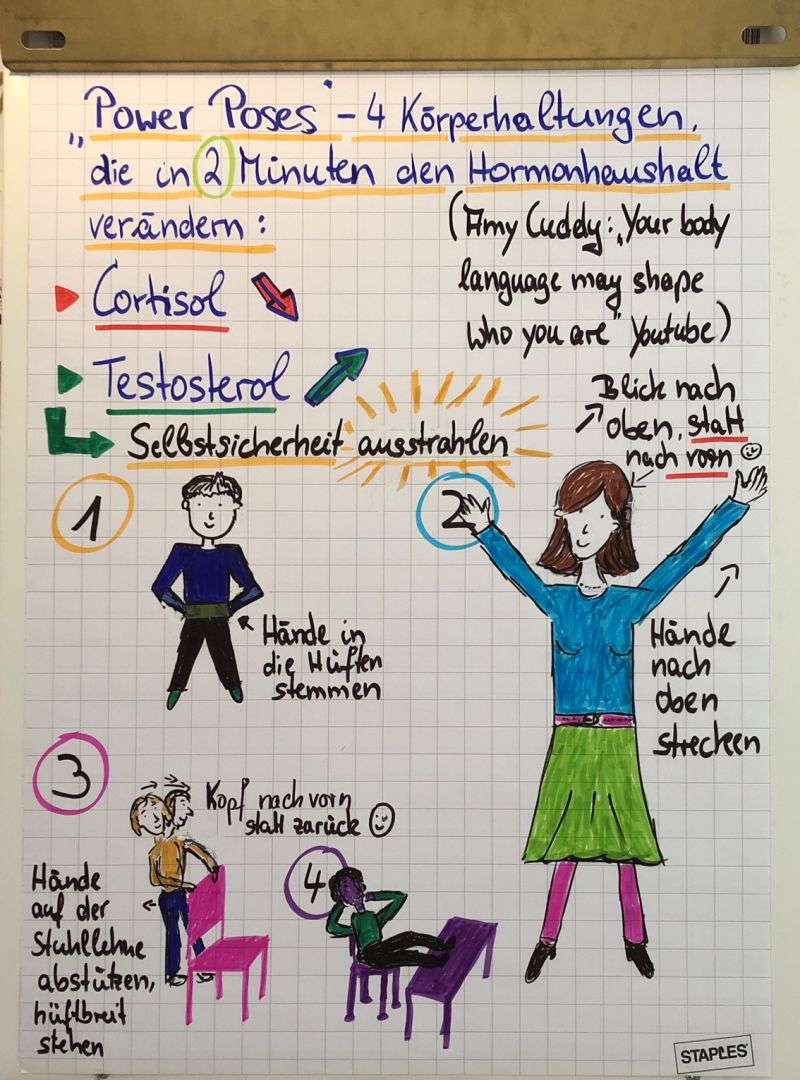 „Power Poses“ – 4 Körperhaltungen,
die in 2 Minuten den Hormonhaushalt
verändern:
(Amy Cuddy: „Your body
language may shape
who you are“ Youtube)
Cortisol
Testosterol
Selbstsicherheit ausstrahlen
1
Hände in
die Hüften
stemmen
2
Blick nach
oben, statt
nach vorn
Hände
nach
oben
strecken
3
Kopf nach vorn
statt zurück
Hände
auf der
Stuhllehne
abstützen,
hüftbreit
stehen
4
STAPLES